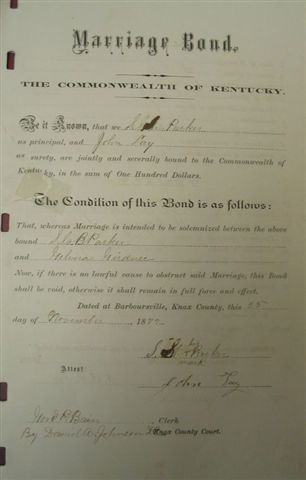 Marriage Bond.
THE COMMONWEALTH OF KENTUCKY.
Be it Known, that we Parker
as principal, and John
as surety, are jointly and severally bound to the Commonwealth of
Kentucky, in the sum of One Hundred Dollars.
The Condition of this Bond is as follows:
That, whereas Marriage is intended to be solemnized between the above
bound Parker
and
Now, if there is no lawful cause to obstruct said Marriage, this Bond
shall be void, otherwise it shall remain in full force and effect.
Dated at Barboursville, Knox County, this 25
day of November, 187
mark
John
Attest:
Clerk
By Daniel A. Johnson Knox County Court.